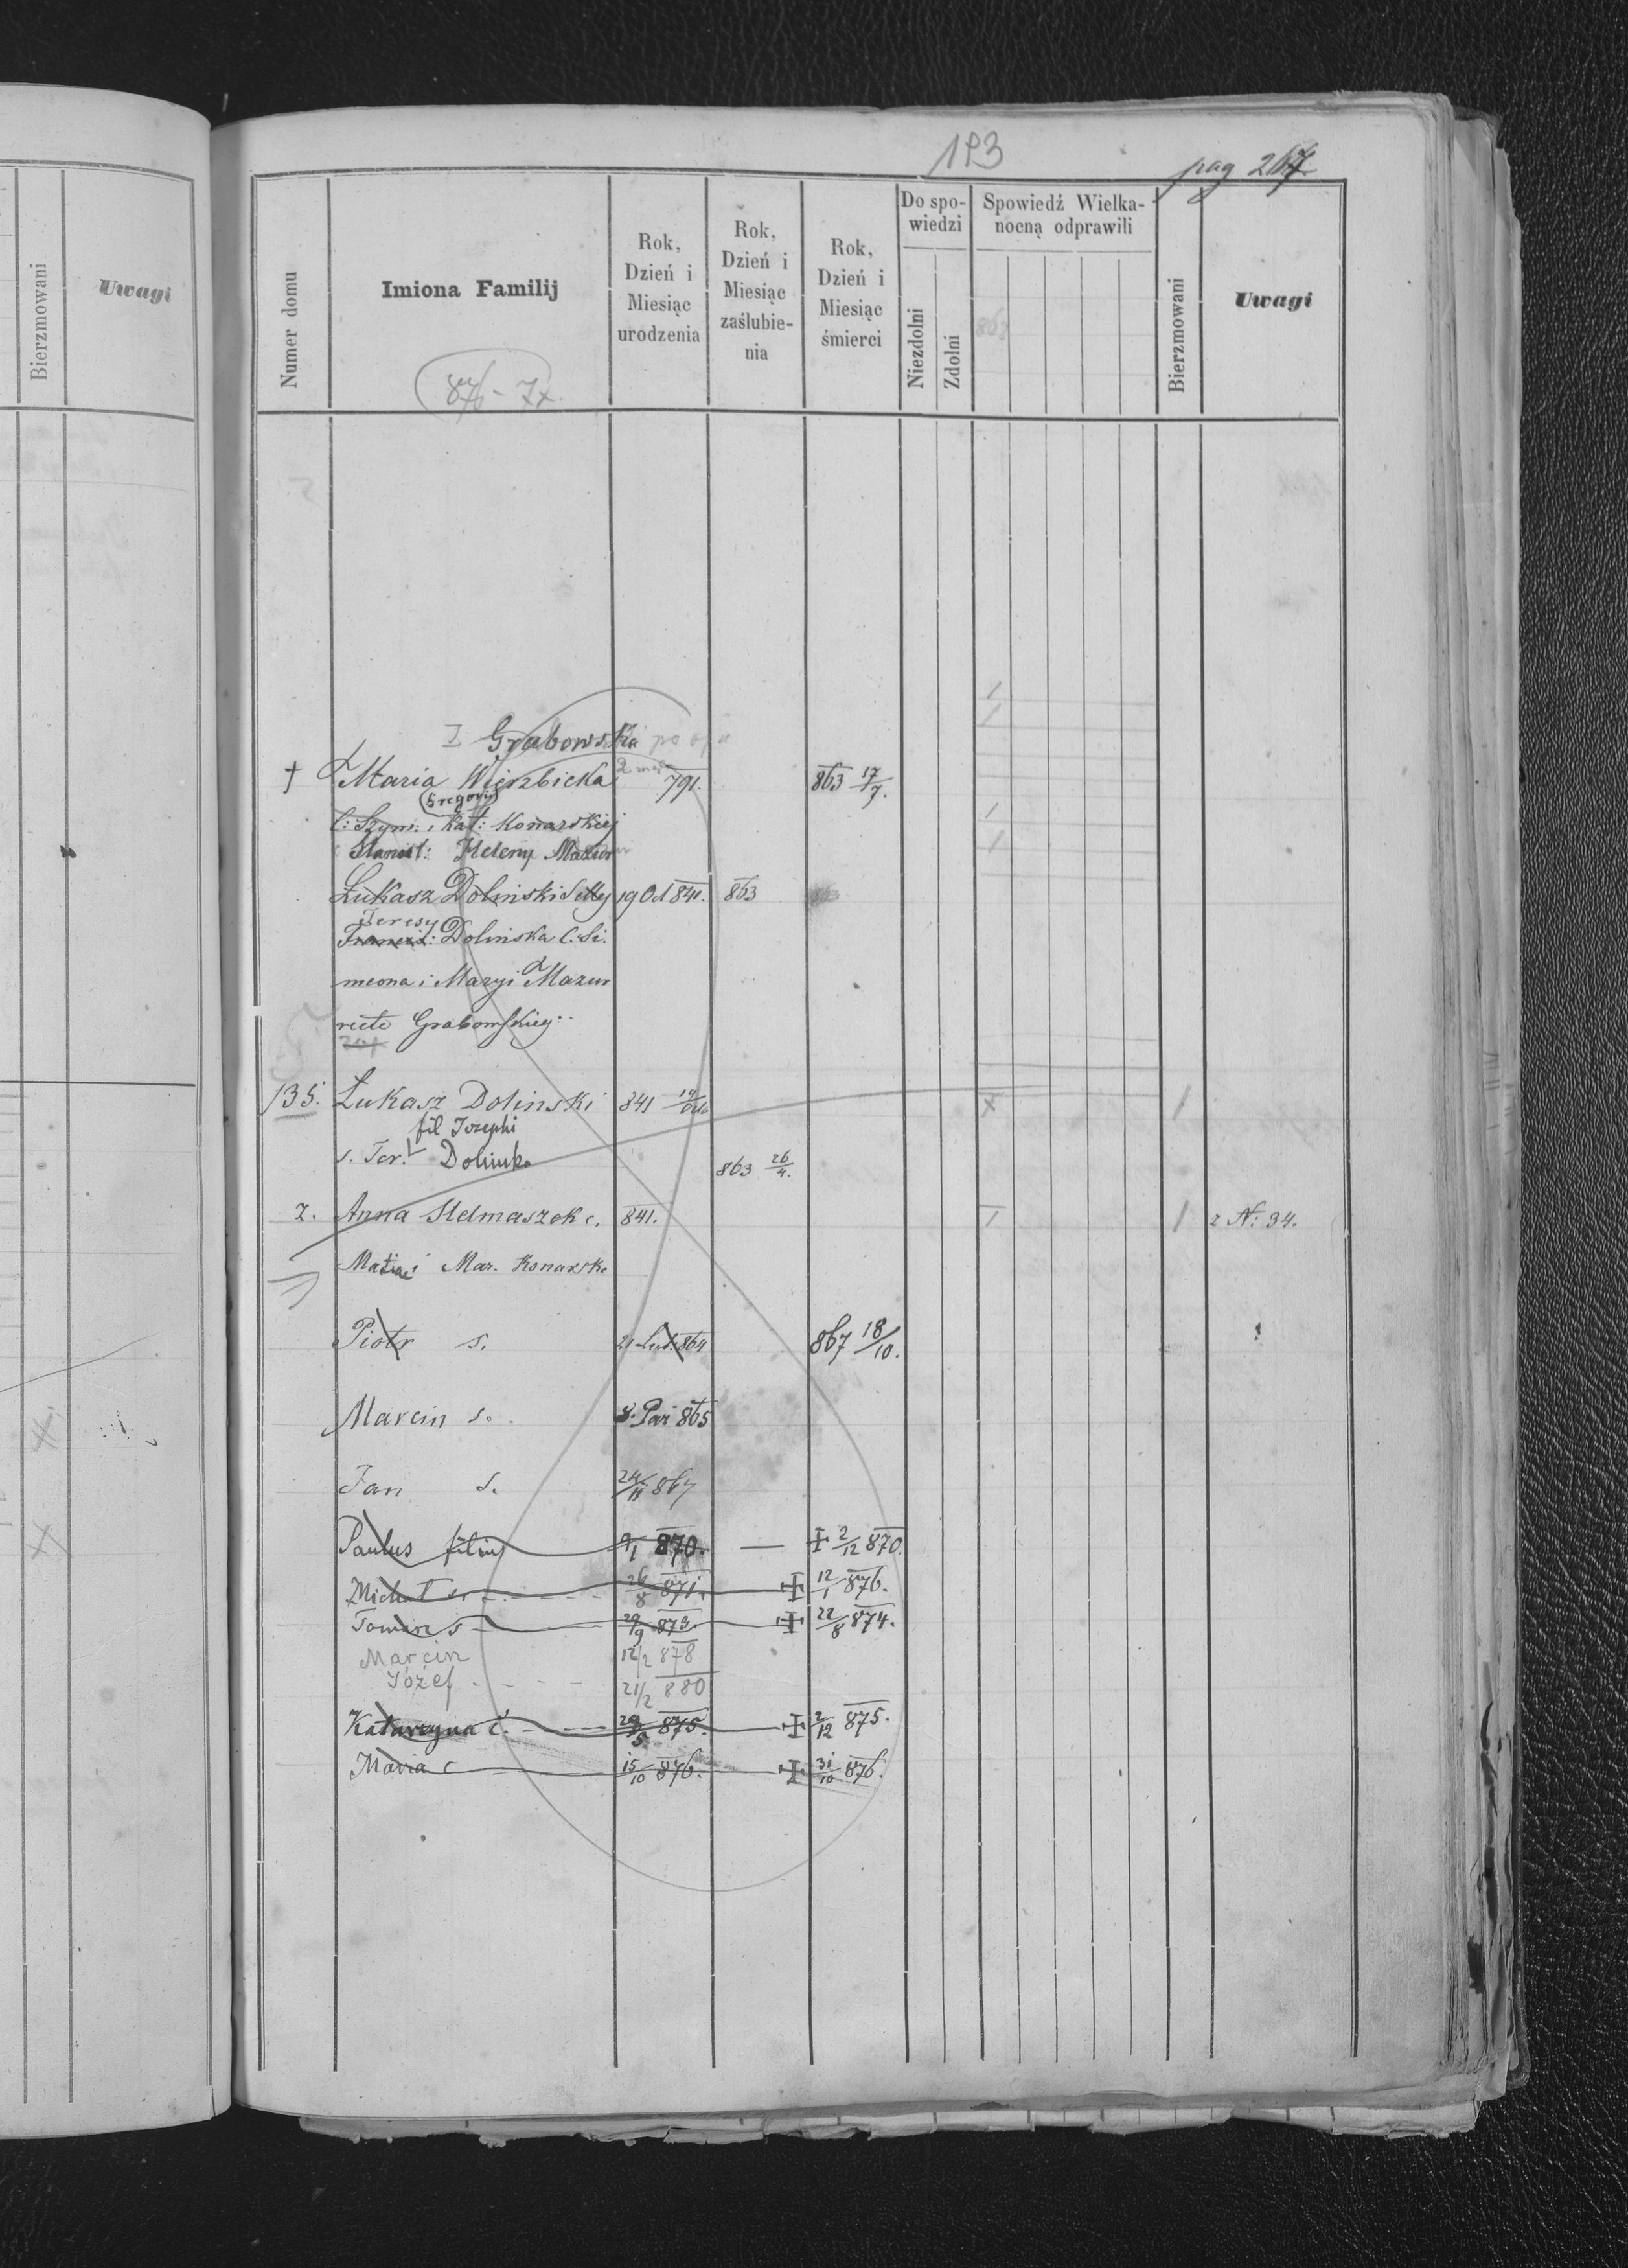 Bierzmowani
Uwagi
183
pag 267
Numer domu
Imiona Familij
Rok, Dzień i Miesiąc urodzenia
Rok, Dzień i Miesiąc zaślubie-nia
Rok, Dzień i Miesiąc śmierci
Do spo-wiedzi
Niezdolni
Zdolni
Spowiedź Wielka-nocną odprawili
863
Bierzmowani
Uwagi
876 - 7x.
I Grabowska po
† Maria Wierzbicka 2 791. 863 17/7.
(Gregorii)
C: Szym: i Kat: Konarskiej
Stanisł: Heleny Mazur
Łukasz Dolinski 19 Oct 841. 863
Teresy
Francisz: Dolinska C. Si.
meona i Maryi Mazur
recte Grabowskiey
135. Łukasz Dolinski 841 19/Oct X /
fil Josephi
s. Ter. Dolinsk 863 26/4.
2. Anna Stelmaszek c. 841. / / z N: 34.
i Mar. Konarsk
Piotr s. 21 Lut 864 867 18/10.
Marcin s. 8. Paź 865
Jan s. 24/11 867
Paulus filius 9/1 870. — ‡ 2/12 870.
Michał s. 26/8 871. ‡ 12/1 876.
Tomasz s 29/9 873. ‡ 22/8 874.
Marcin 12/2 878
Józef - - - 21/2 880
Katarzyna c. 29/5 875. ‡ 2/12 875.
Maria c 15/10 876. ‡ 31/10 876.